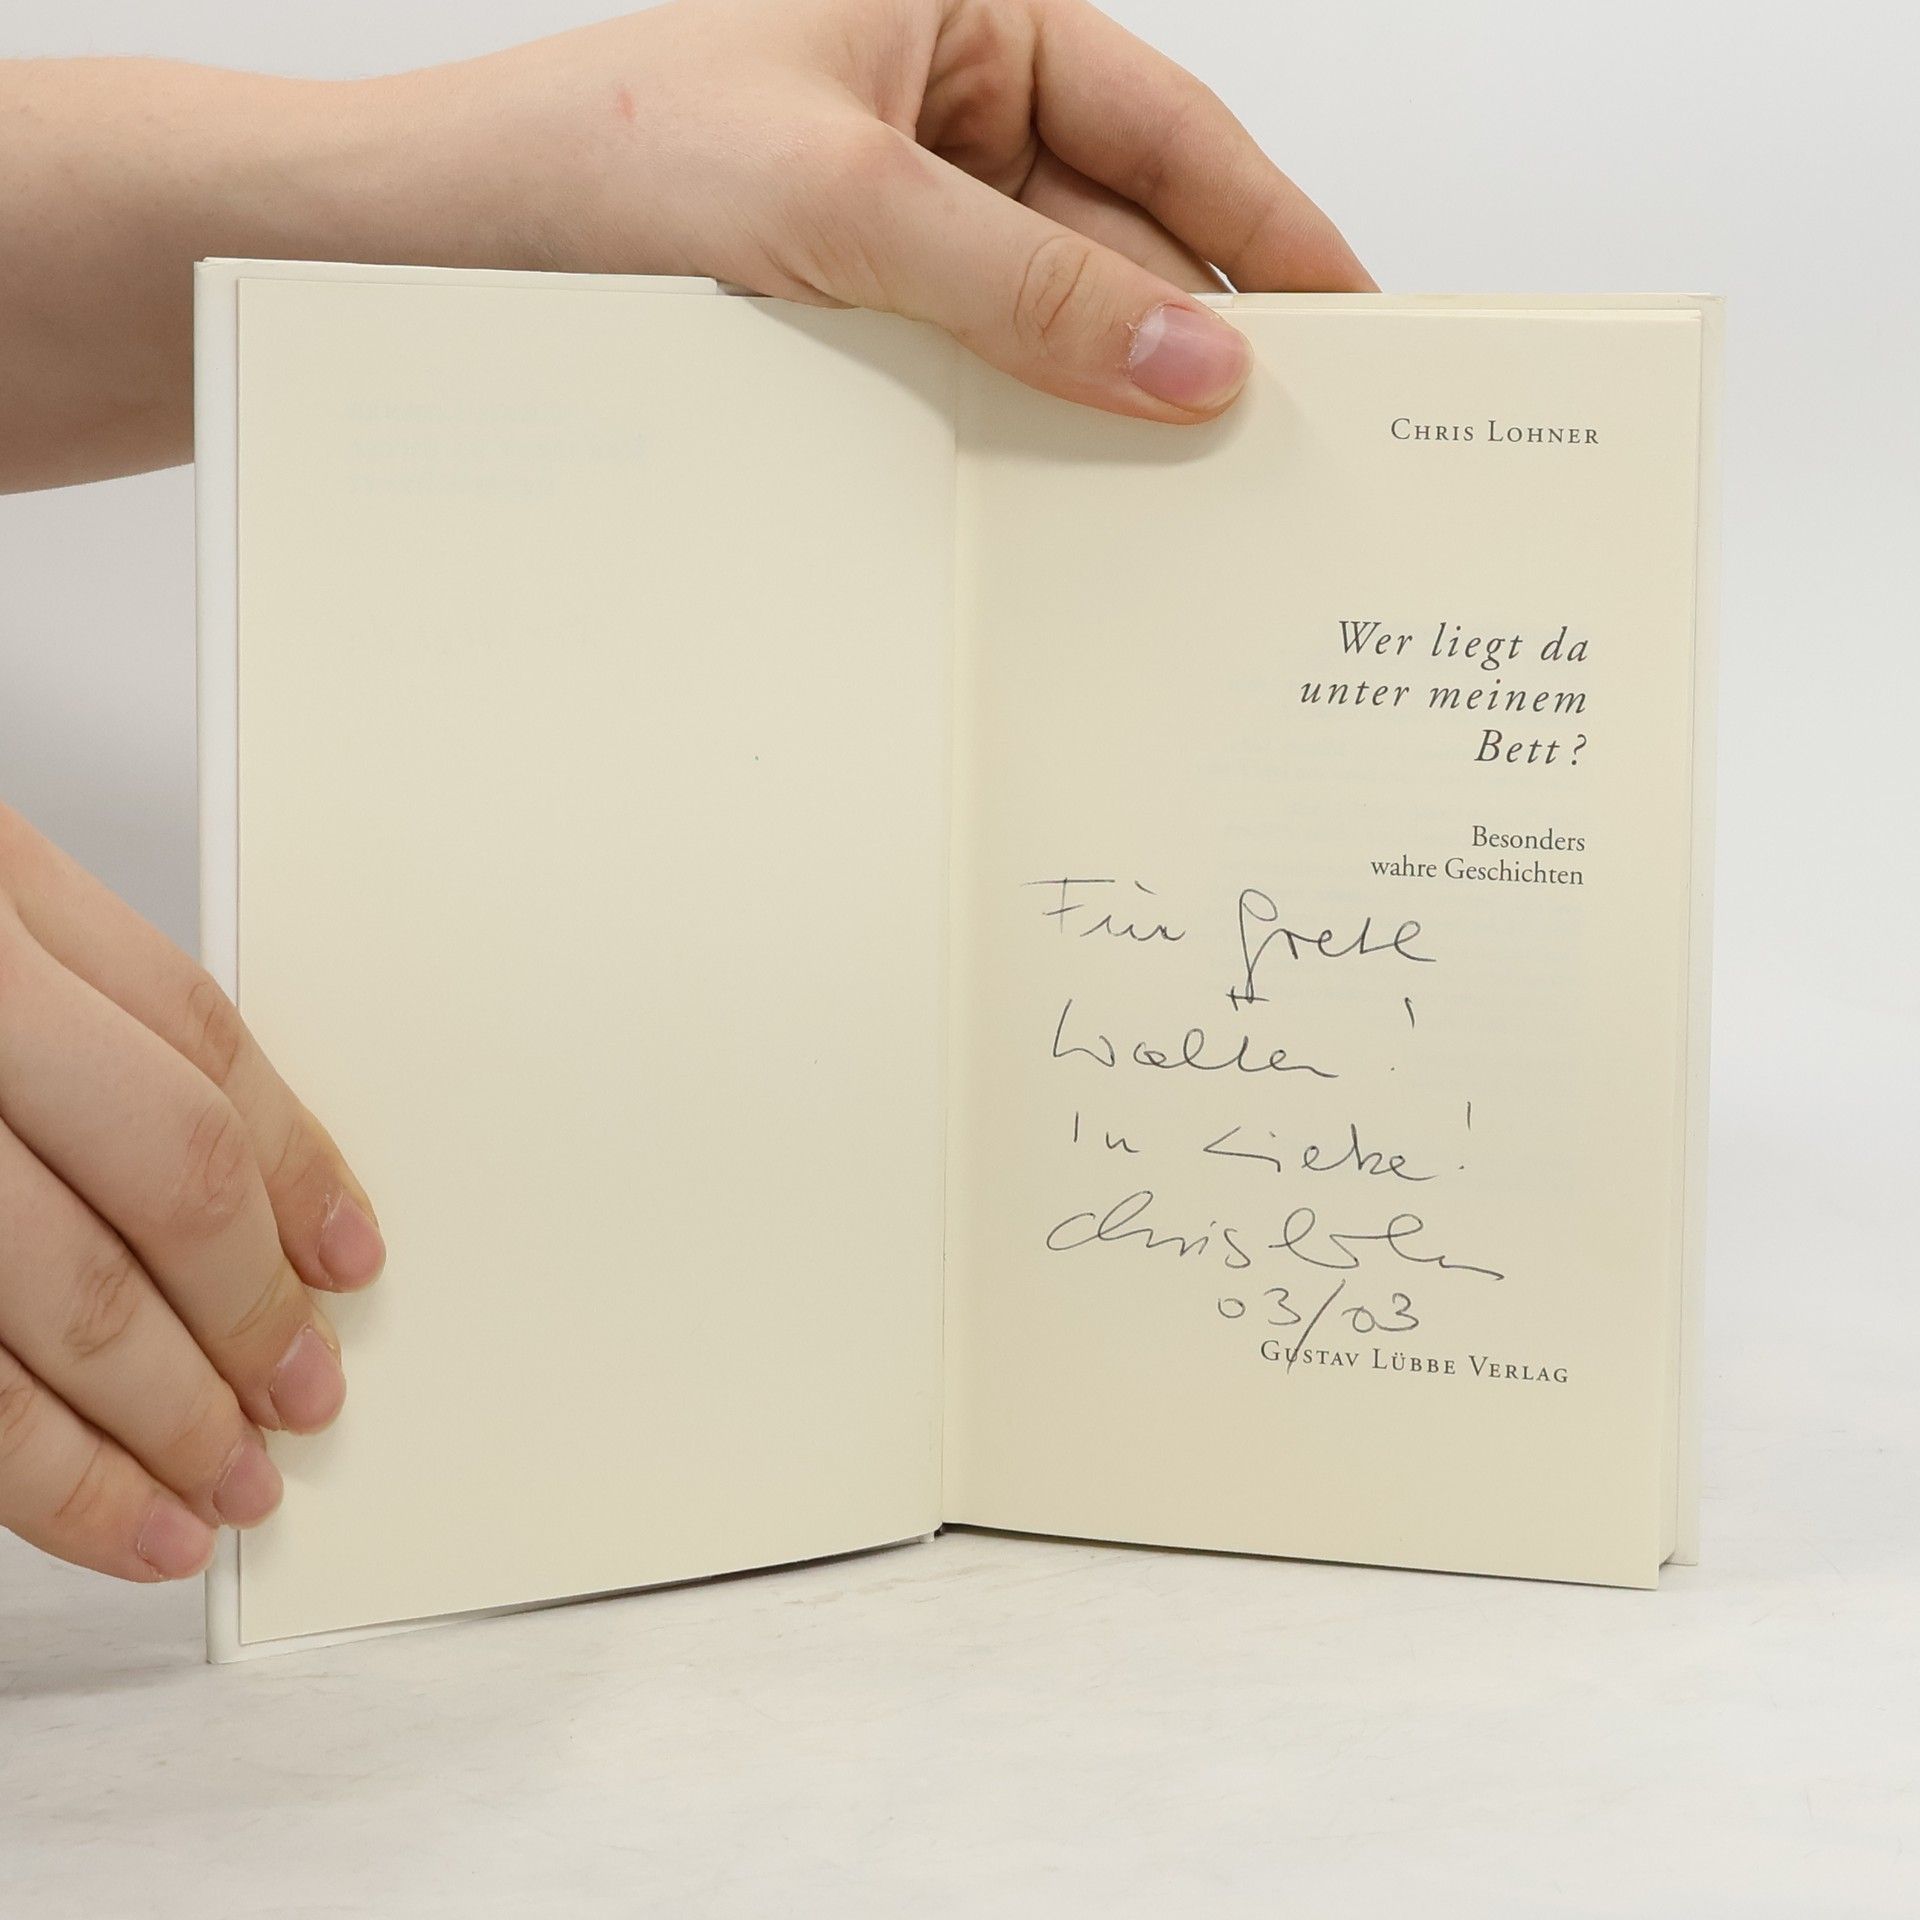 CHRIS LOHNER
Wer liegt da
unter meinem
Bett?
Besonders
wahre Geschichten
Für Gretl
+
Walter!
In Liebe!
Chris Lohner
03/03
GUSTAV LÜBBE VERLAG